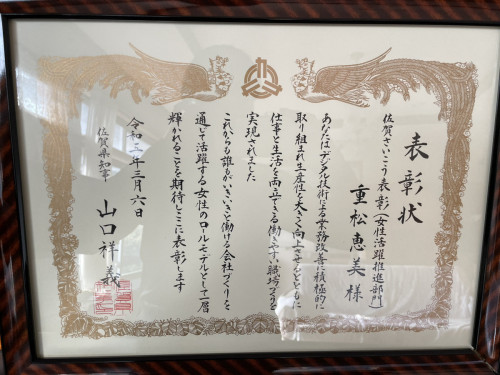 表彰状
佐賀さいこう表彰(女性活躍推進部門)
重松恵美様
あなたはデジタル技術による業務改善に積極的に
取り組まれ生産性を大きく向上させるとともに
仕事と生活を両立できる働きやすい職場づくりを
実現されました
これからも誰もがいきいきと働ける会社づくりを
通じて活躍する女性のロールモデルとして一層
輝かれることを期待しここに表彰します
令和三年三月六日
佐賀県知事 山口祥義